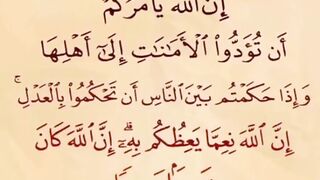 إِنَّ اللَّهَ يَأْمُرُكُمْ
أَن تُؤَدُّوا۟ الْأَمَٰنَٰتِ إِلَىٰٓ أَهْلِهَا
وَإِذَا حَكَمْتُم بَيْنَ النَّاسِ أَن تَحْكُمُوا۟ بِالْعَدْلِ ۚ
إِنَّ اللَّهَ نِعِمَّا يَعِظُكُم بِهِۦٓ ۗ إِنَّ اللَّهَ كَانَ